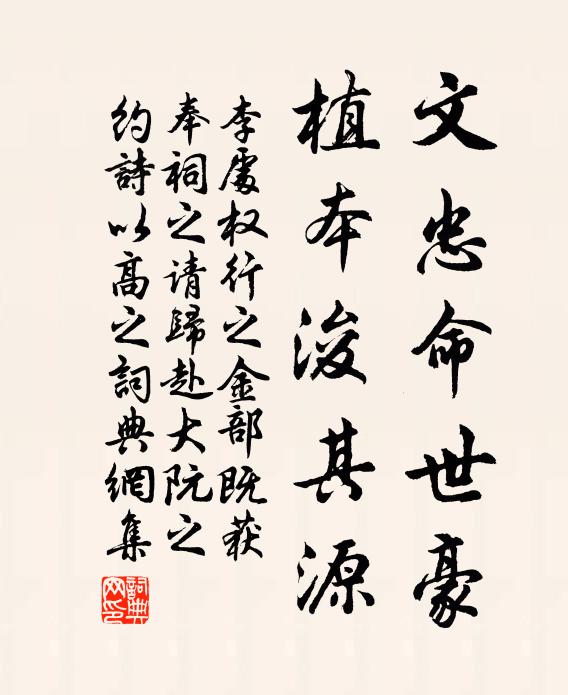 文忠命世豪
植本浚其源
李處权行之金部既获
奉祠之请歸赴大阮之
约詩以高之詞典網集
詞典网印